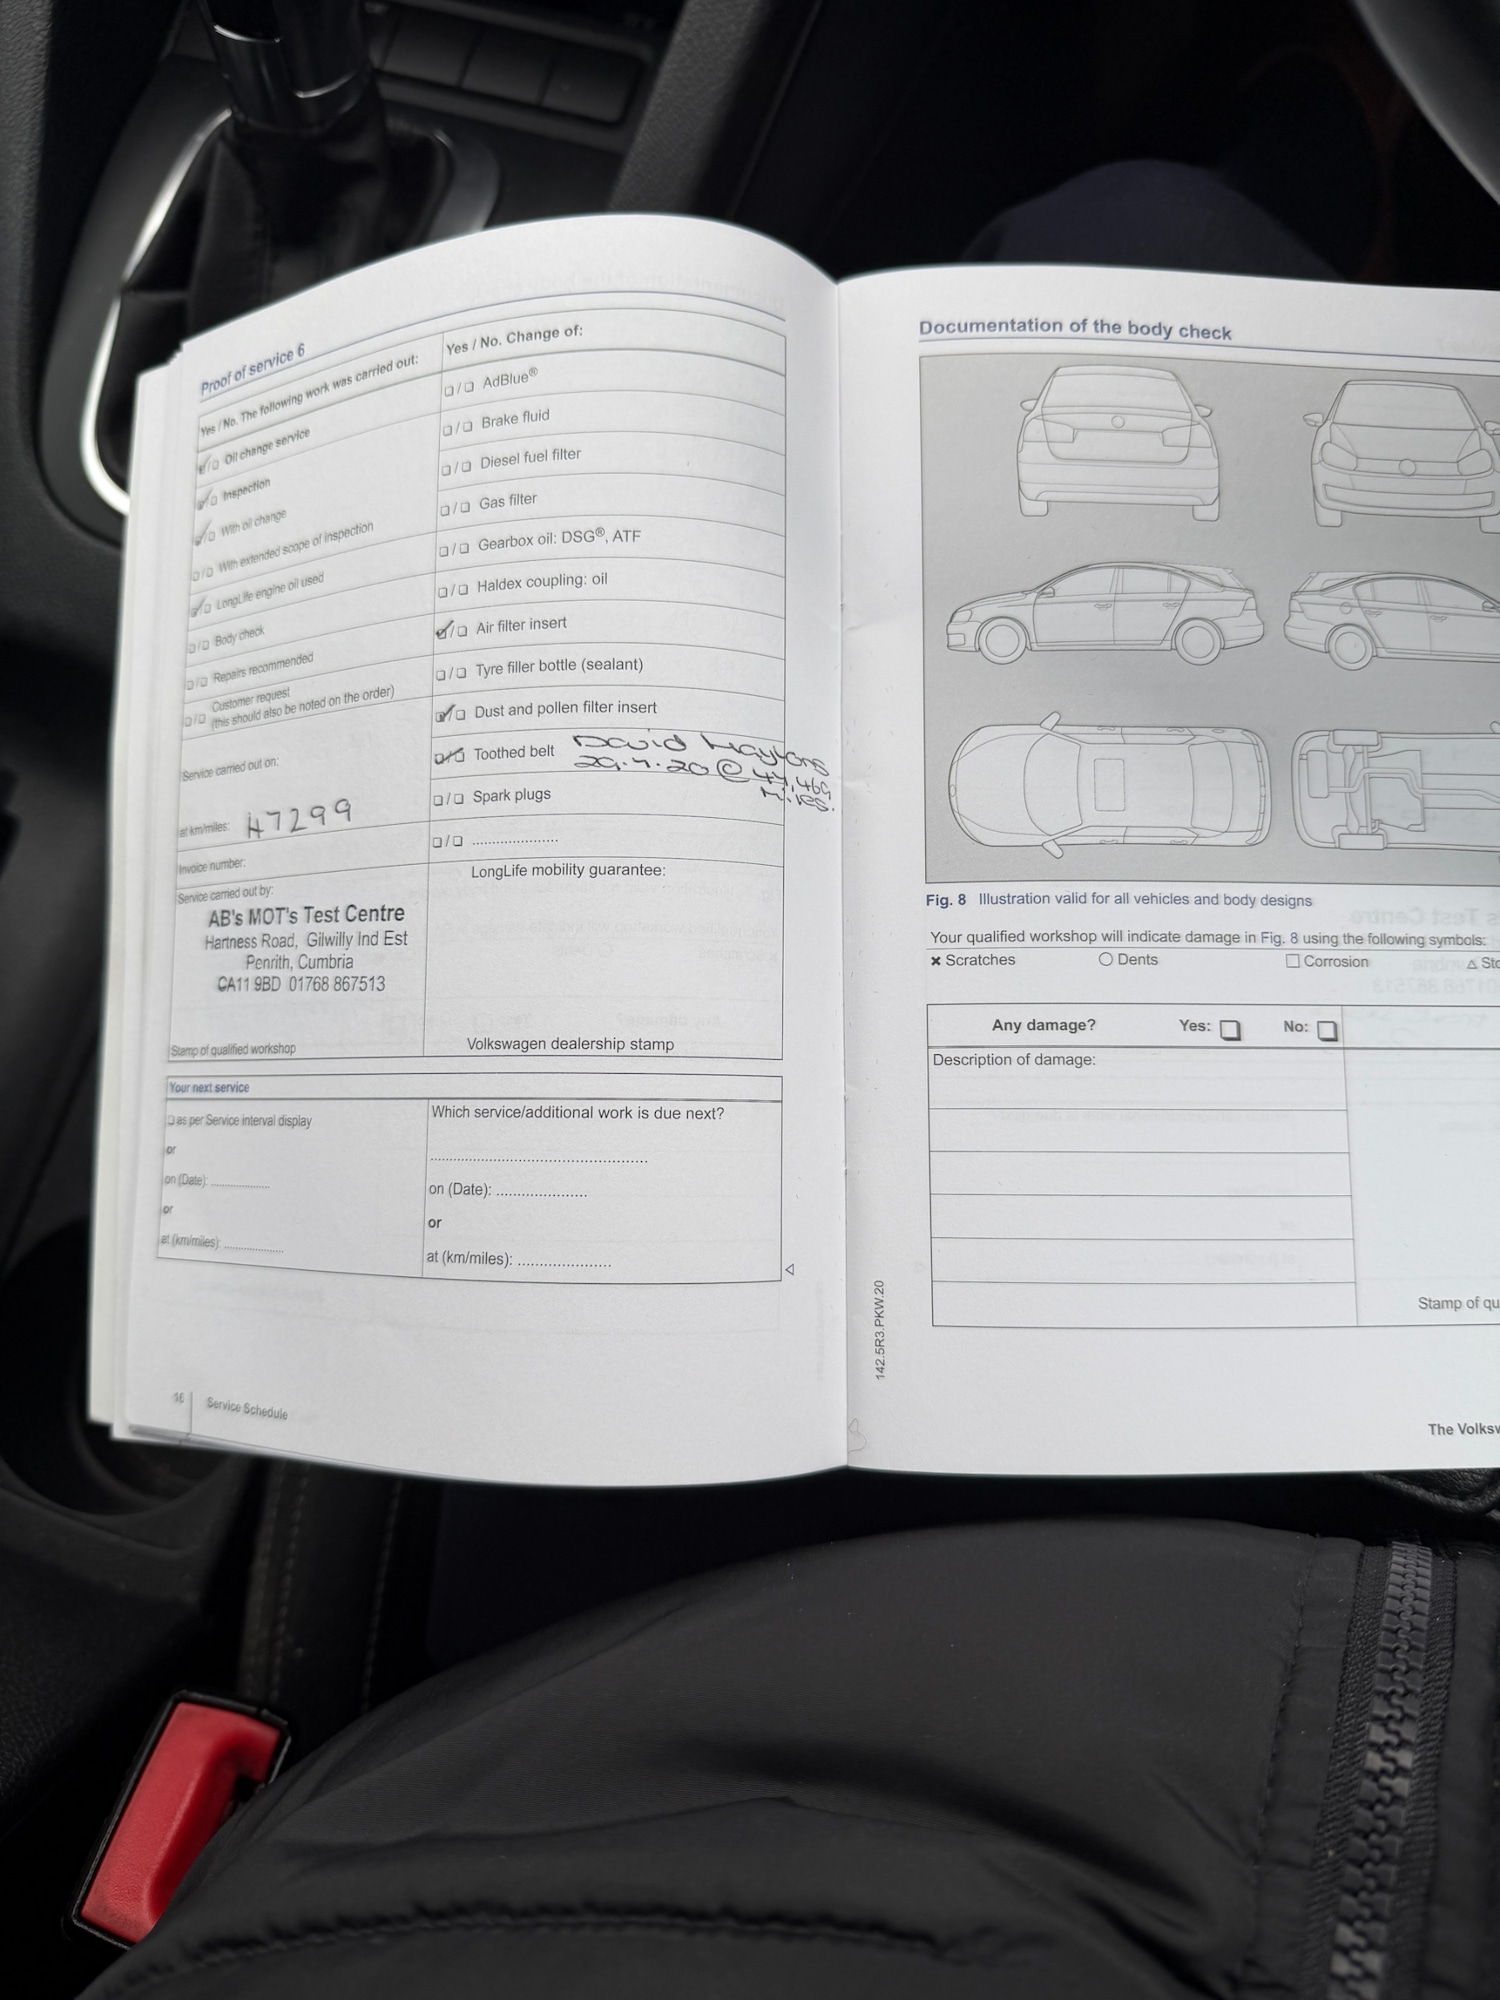 Proof of service 6
Yes / No. The following work was carried out:
❏/❏ Oil change service
❏/❏ Inspection
❏/❏ With oil change
❏/❏ With extended scope of inspection
❏/❏ LongLife engine oil used
❏/❏ Body check
❏/❏ Repairs recommended
❏/❏ Customer request
(this should also be noted on the order)
Service carried out on:
at km/miles: 47299
Invoice number:
Service carried out by:
AB's MOT's Test Centre
Hartness Road, Gilwilly Ind Est
Penrith, Cumbria
CA11 9BD 01768 867513
Stamp of qualified workshop
Yes / No. Change of:
❏/❏ AdBlue®
❏/❏ Brake fluid
❏/❏ Diesel fuel filter
❏/❏ Gas filter
❏/❏ Gearbox oil: DSG®, ATF
❏/❏ Haldex coupling: oil
❏/❏ Air filter insert
❏/❏ Tyre filler bottle (sealant)
❏/❏ Dust and pollen filter insert
❏/❏ Toothed belt David Haytons
29.7.20 @ 44,469
Miles.
❏/❏ Spark plugs
❏/❏ ......................
LongLife mobility guarantee:
Volkswagen dealership stamp
Your next service
❏ as per Service interval display
or
on (Date): ...............
or
at (km/miles): ...............
Which service/additional work is due next?
on (Date): ......................
or
at (km/miles): ......................
16 Service Schedule
Documentation of the body check
Fig. 8 Illustration valid for all vehicles and body designs
Your qualified workshop will indicate damage in Fig. 8 using the following symbols:
× Scratches ○ Dents □ Corrosion △ Sto
Any damage? Yes: ❏ No: ❏
Description of damage:
Stamp of qu
142.5R3.PKW.20
The Volksw